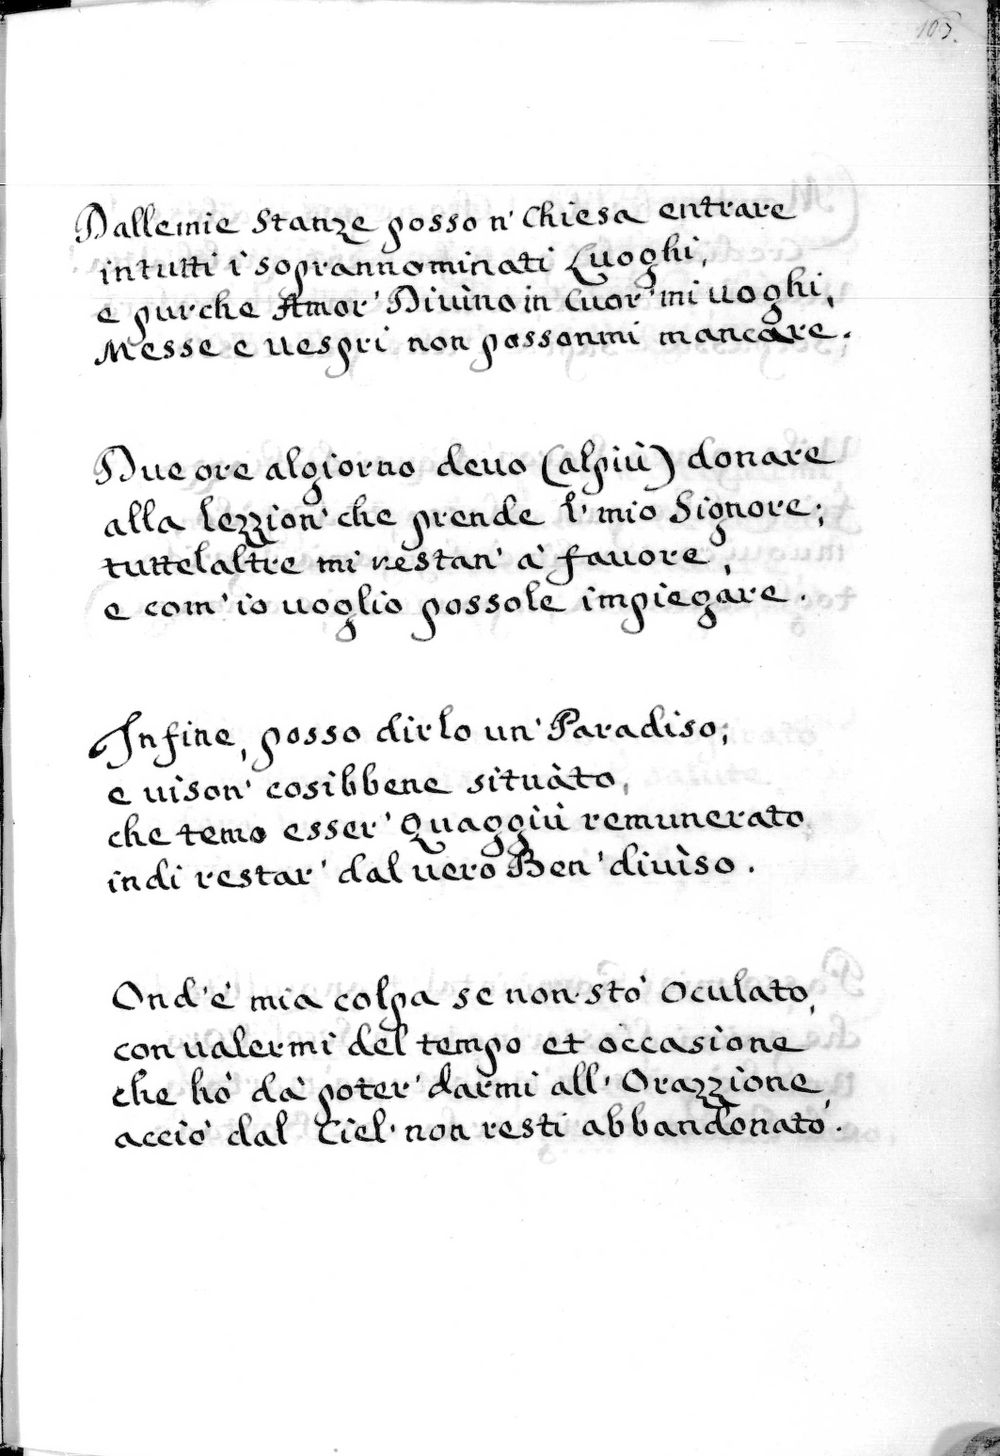 105.
Dallemie Stanze posso n' Chiesa entrare
intutti i soprannominati Luoghi,
e purche Amor' Divino in Cuor' mi uoghi,
Messe e uespri non possonmi mancare.
Due ore algiorno deuo (alpiù) donare
alla lezzion' che prende l' mio Signore;
tuttelaltre mi restan' à fauore,
e com' io uoglio possole impiegàre.
Infine, posso dirlo un' Paradiso;
e uison' cosibbene situàto,
che temo esser' Quaggiù remunerato,
indi restar' dal uero Ben' diuìso.
Ond'è mia colpa se non stò Oculato,
con ualermi del tempo et occasione
che hò dà poter' darmi all' Orazzione,
acciò dal Ciel' non resti abbandonato.